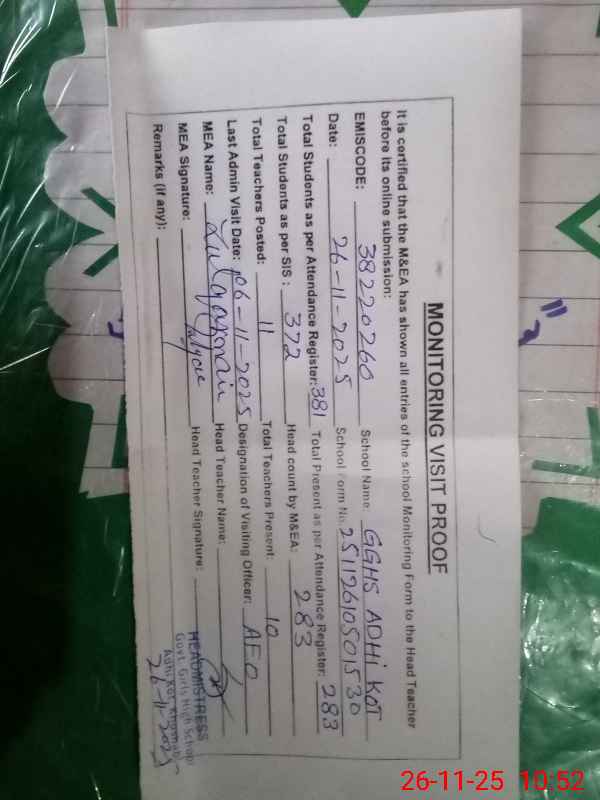 MONITORING VISIT PROOF
It is certified that the M&EA has shown all entries of the school Monitoring Form to the Head Teacher
before its online submission:
EMISCODE: 38220260 School Name: GGHS ADHi KOT
Date: 26-11-2025 School Form No. 25112610501530
Total Students as per Attendance Register: 381 Total Present as per Attendance Register: 283
Total Students as per SIS : 372 Head count by M&EA: 283
Total Teachers Posted: 11 Total Teachers Present: 10
Last Admin Visit Date: 06-11-2025 Designation of Visiting Officer: AEO
MEA Name: Head Teacher Name:
MEA Signature: Head Teacher Signature:
Remarks (if any):
HEADMISTRESS
Govt. Girls High School
Adhi Kot
26-11-2025
26-11-25 10:52